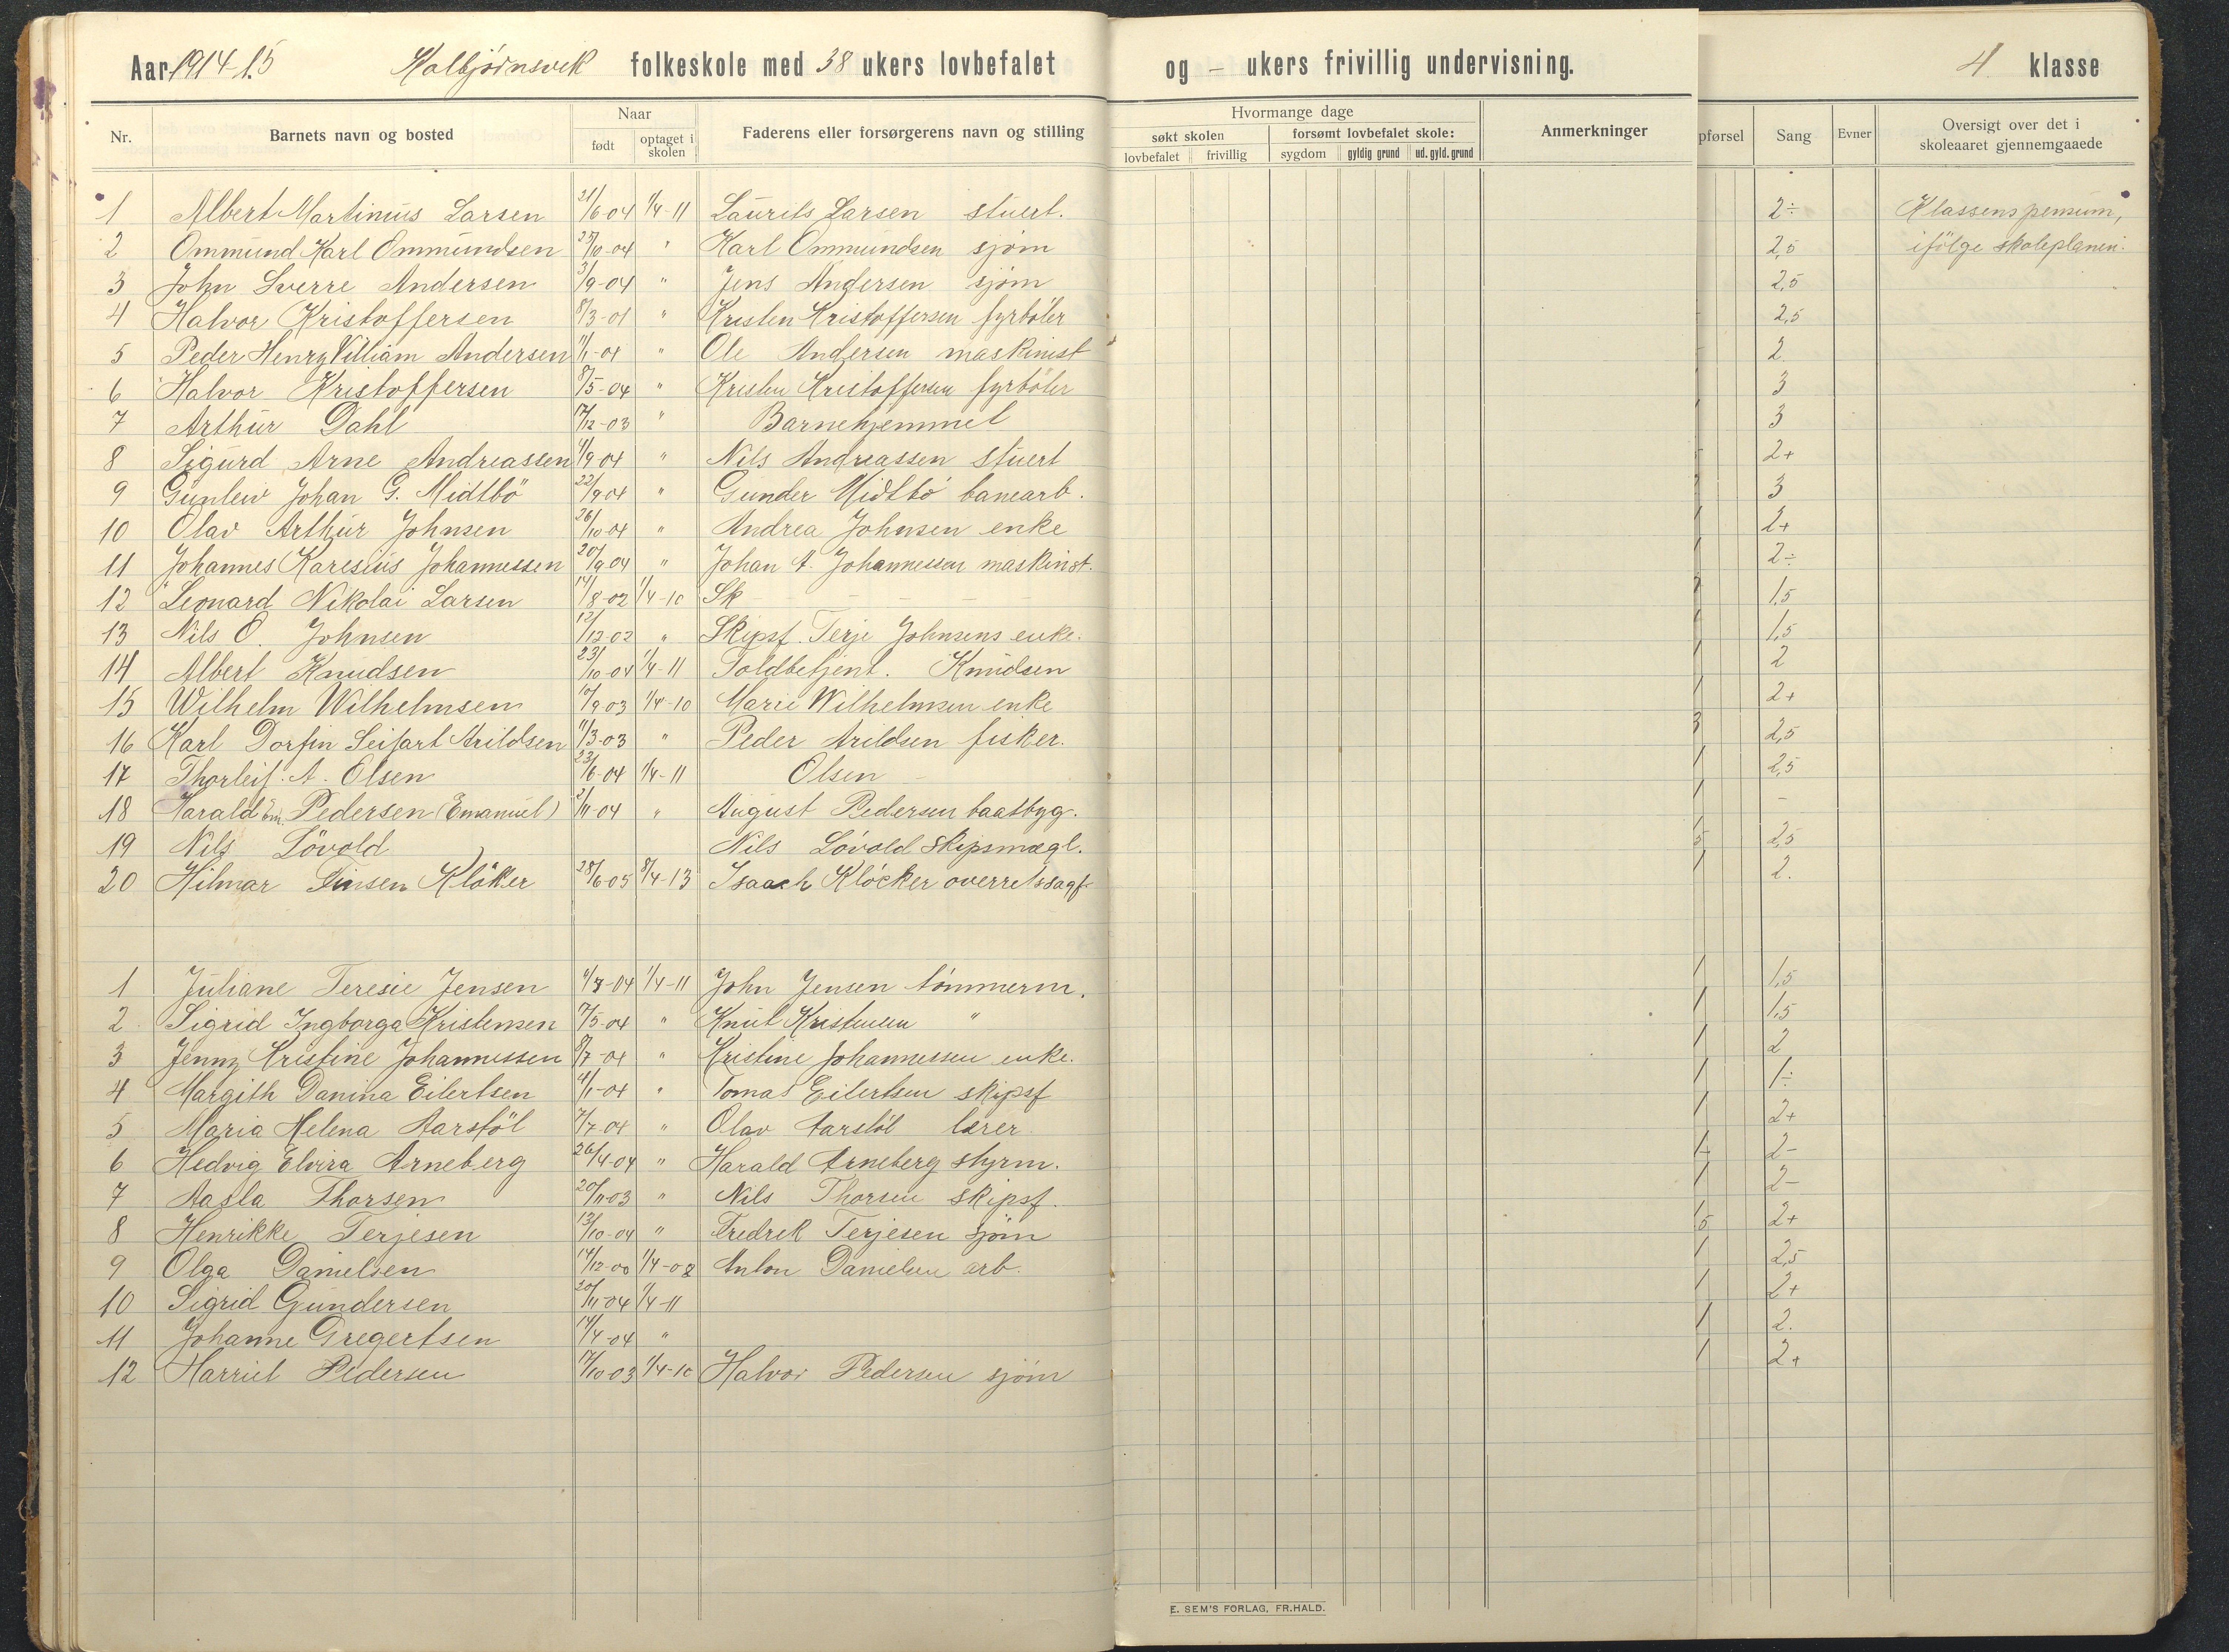 Aar 1914-15 Kolbjørnsvik folkeskole med 38 ukers lovbefalet og - ukers frivillig undervisning. 4 klasse
Nr. Barnets navn og bosted Naar født optaget i skolen Faderens eller forsørgerens navn og stilling Hvormange dage søkt skolen lovbefalet frivillig forsømt lovbefalet skole: sygdom gyldig grund ud. gyld. grund Anmerkninger pførsel Sang Evner Oversigt over det i skoleaaret gjennemgaaede
1 Albert Martinius Larsen 21/6-04 1/4-11 Laurits Larsen stuert. 2÷ Klassens pensum,
2 Ommund Karl Ommundsen 27/10-04 " Karl Ommundsen sjøm 2,5 ifölge skoleplanen.
3 John Sverre Andersen 3/9-04 " Jens Andersen sjøm 2,5
4 Halvor Kristoffersen 8/3-01 " Kristen Kristoffersen fyrböter 2,5
5 Peder Henry Villiam Andersen 11/1-04 " Ole Andersen maskinist 2
6 Halvor Kristoffersen 8/5-04 " Kristen Kristoffersen fyrböter 3
7 Arthur Dahl 17/12-03 " Barnehjemmet 3
8 Sigurd Arne Andreassen 4/9 04 " Nils Andreassen stuert 2+
9 Gunleiv Johan G. Midtbö 22/9 04 " Gunder Midtbö banearb. 3
10 Olav Arthur Johnsen 26/10-04 " Andrea Johnsen enke 2+
11 Johannes Karesius Johannessen 20/9 04 " Johan A. Johannessen maskinst. 2÷
12 Leonard Nikolai Larsen 14/8-02 1/4-10 Sk - - - - - 1,5
13 Nils O. Johnsen 12/12-02 " Skipsf. Terje Johnsens enke. 1,5
14 Albert Knudsen 23/10-04 1/4-11 Toldbetjent. Knudsen 2
15 Wilhelm Wilhelmsen 10/9 03 1/4-10 Marie Wilhelmsen enke 2+
16 Karl Dorfin Seifart Arildsen 11/3-03 " Peder Arildsen fisker. 3 2,5
17 Thorleif. A. Olsen 23/6-04 1/4-11 Olsen - 2,5
18 Harald Em. Pedersen (Emanuel) 2/11-04 " August Pedersen baatbyg. -
19 Nils Lövold Nils Lövold skipsmægl. 5 2,5
20 Hilmar Finsen Klöker 28/6-05 8/4-13 Isaach Klöcker overretssagf. 2.
1 Juliane Teresie Jensen 11/8-04 1/4-11 John Jensen tömmerm. 1,5
2 Sigrid Ingborga Kristensen 17/5-04 " Knut Kristensen " 1,5
3 Jenny Kristine Johannessen 8/7-04 " Kristine Johannessen enke. 2
4 Margith Danina Eilertsen 4/1-04 " Tomas Eilertsen skipsf 1÷
5 Maria Helena Aarstöl 7/7-04 " Olav Aarstöl lærer. 2+
6 Hedvig Elvira Arneberg 26/4-04 " Harald Arneberg styrm. 2-
7 Aasla Thorsen 20/11-03 " Nils Thorsen skipsf. 2-
8 Henrikke Terjesen 13/10-04 " Fredrek Terjesen sjöm 5 2+
9 Olga Danielsen 14/12-00 1/4-08 Anton Danielsen arb. 2,5
10 Sigrid Gundersen 20/11-04 1/4-11 2+
11 Johanne Gregertsen 14/4-04 " 2.
12 Harriet Pedersen 17/10-03 1/4-10 Halvor Pedersen sjöm 2+
E. SEM'S FORLAG, FR.HALD.